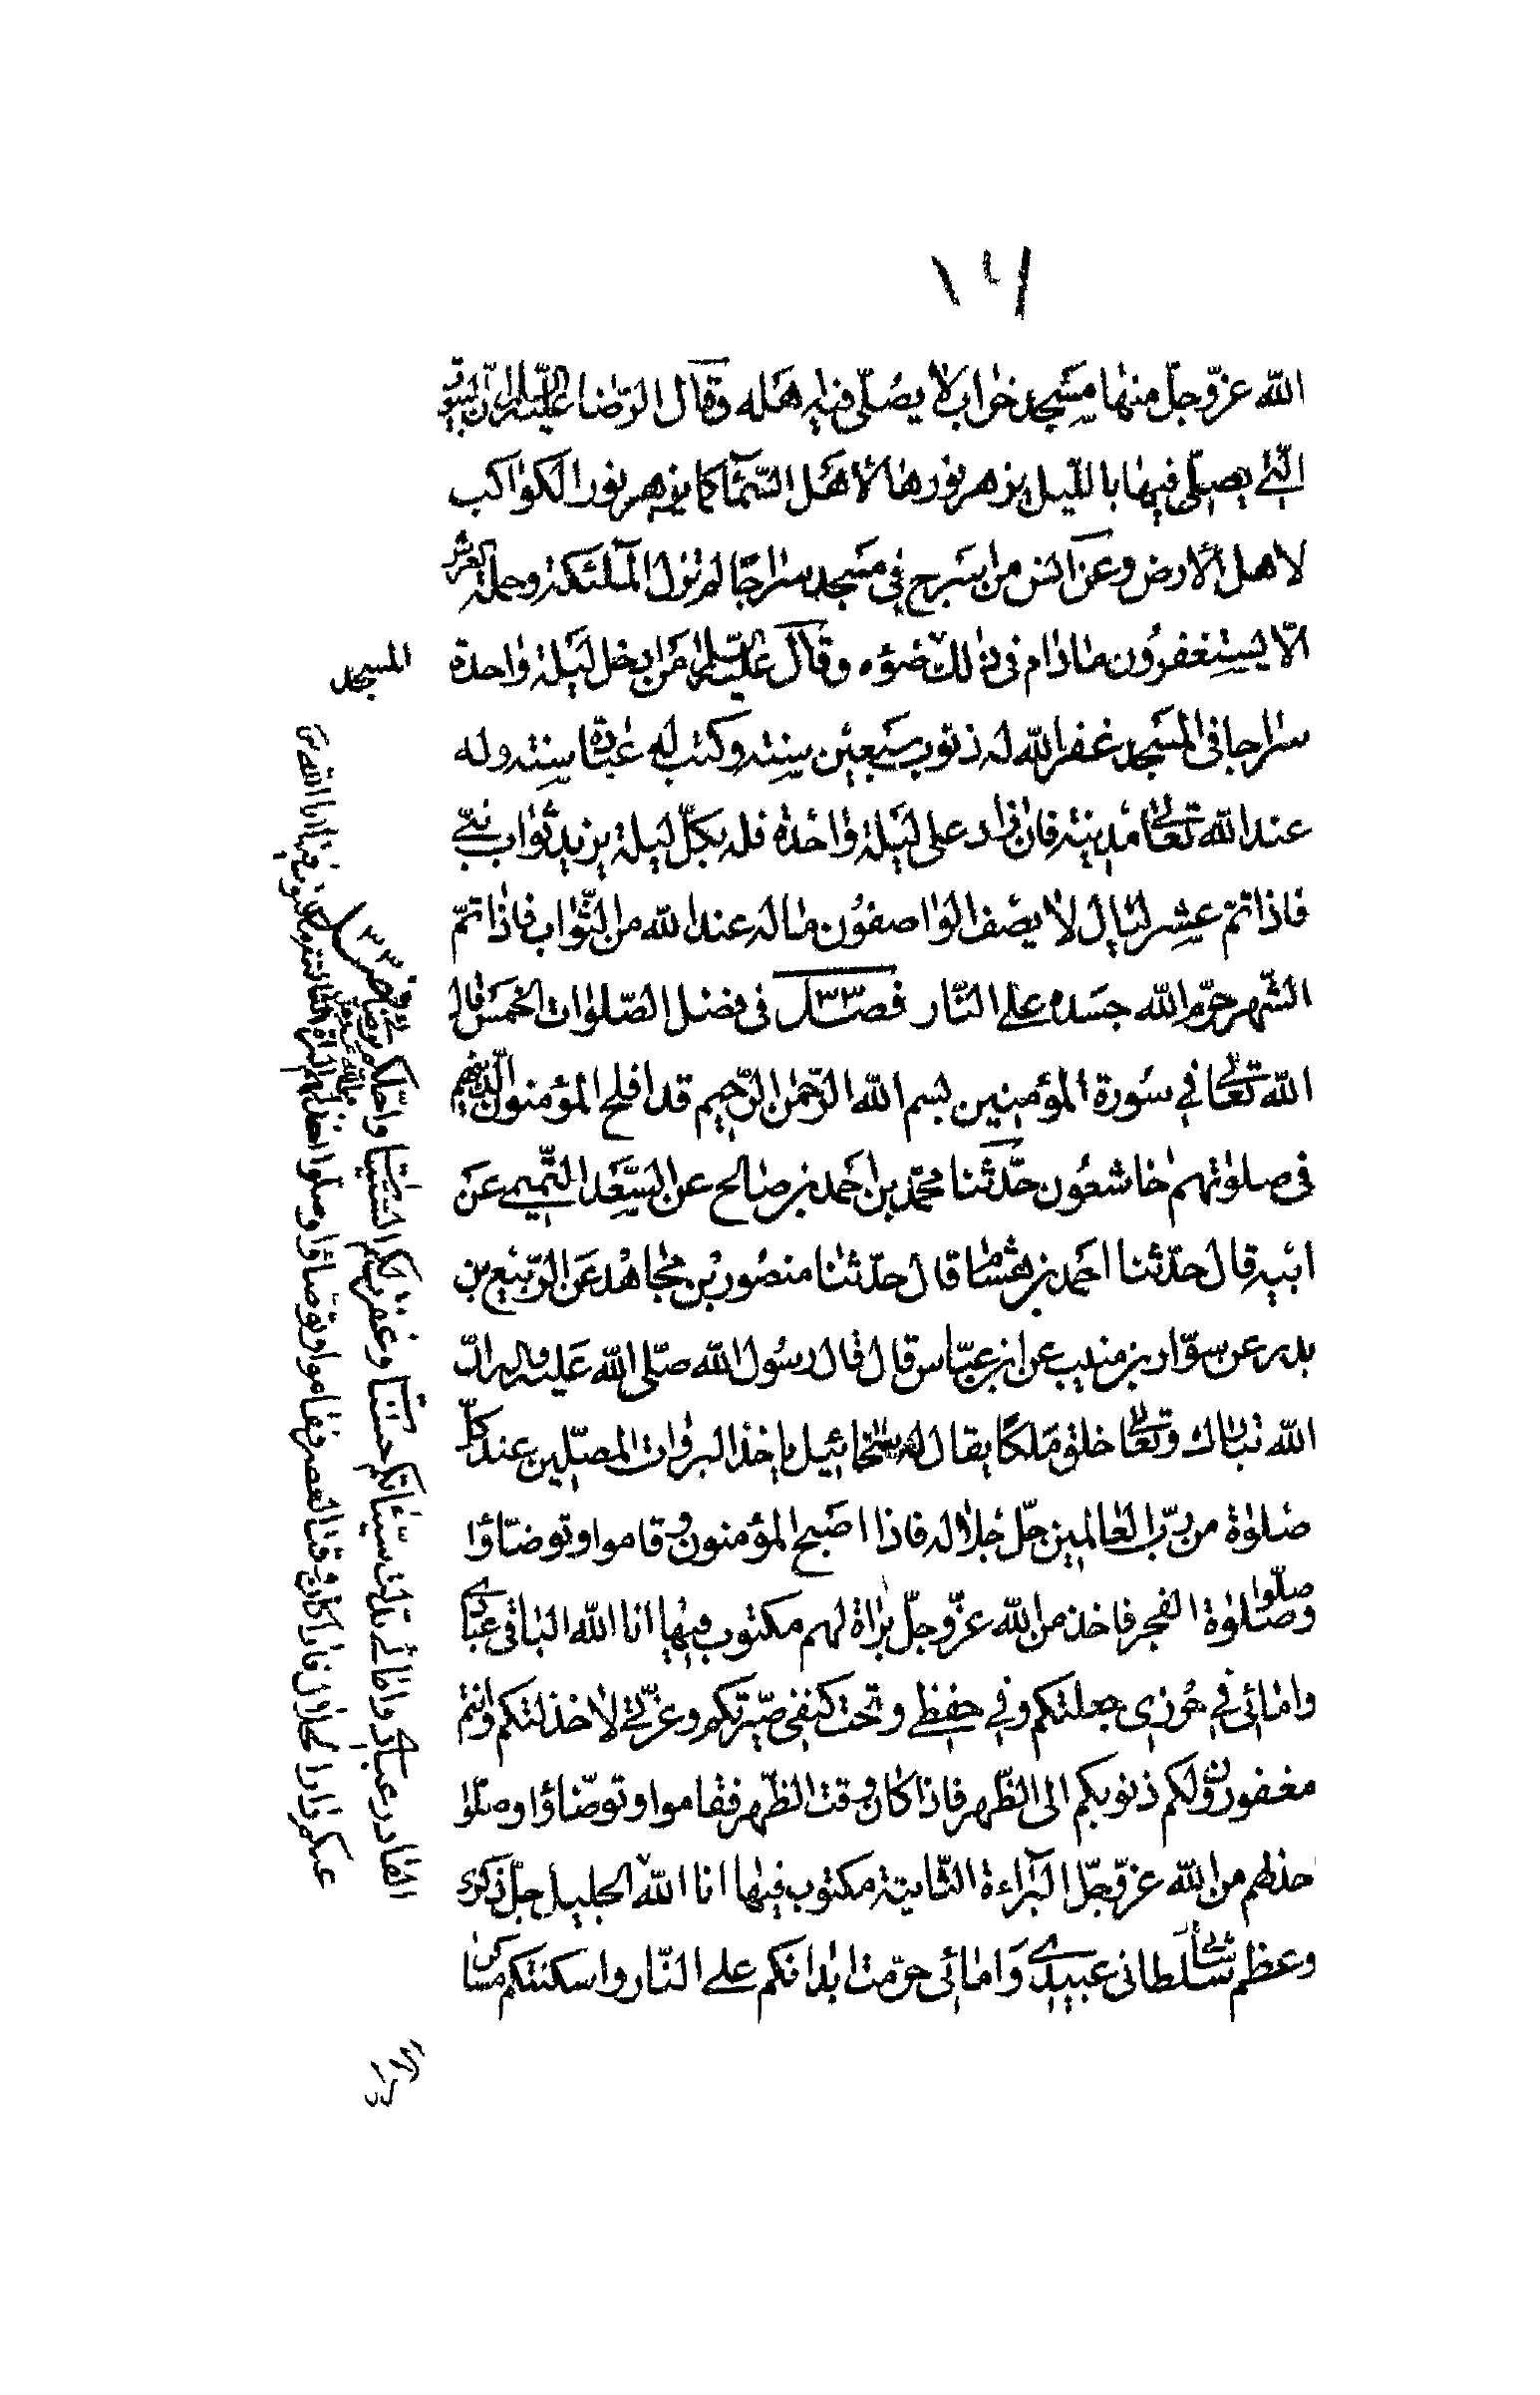 الله عزّوجلّ منها مسجد خراب لا يصلّى فيه اهله وقال الرّضا عليه السلام انّ البيوت
الّتى يصلّى فيها باللّيل يزهر نورها لأهل السّمآء كما يزهر نور الكواكب
لاهل الأرض وعن انس من اسرج فى مسجد سراجًا لم تزل الملئكة وحملة العرش
الّا يستغفرون مادام فى ذلك ضوؤه وقال عليه السلام من ادخل ليلة واحدة
سراجا فى المسجد غفر الله له ذنوب سبعين سنة وكتب له عبادة سنة وله
عند الله تعالى مدينة فان زاد على ليلة واحدة فله بكلّ ليلة يزيد ثواب نبىّ
فاذا تمّ عشر ليال لا يصف الواصفون ماله عند الله من الثّواب فاذا تمّ
الشّهر حرّم الله جسده على النّار فصل ٣٣ فى فضل الصّلوات الخمس قال
الله تعالى فى سورة المؤمنين بسم الله الرّحمن الرّحيم قد افلح المؤمنون الّذين هم
فى صلوتهم خاشعون حدّثنا محمّد بن احمد بن صالح عن السّعد التّميمى عن
ابيه قال حدّثنا احمد بن هشام قال حدّثنا منصور بن مجاهد عن الرّبيع بن
بدر عن سوّار بن منيب عن ابن عبّاس قال قال رسول الله صلّى الله عليه واله انّ
الله تبارك وتعالى خلق ملكًا يقال له سخائيل ياخذ البروات المصلّين عند كلّ
صلوة من ربّ العالمين جلّ جلاله فاذا اصبح المؤمنون وقاموا وتوضّاؤا
وصلّوا صلوة الفجر فاخذ من الله عزّوجلّ براة لهم مكتوب فيها انا الله الباقى عبادى
وامائى فى حرزى جعلتكم وفى حفظى وتحت كنفى صيّرتكم وعزّتى لا خذلتكم وانتم
مغفورون لكم ذنوبكم الى الظّهر فاذا كان وقت الظّهر فقاموا وتوضّاؤا وصلّوا
اخذ لهم من الله عزّوجلّ البرآءة الثّانية مكتوب فيها انا الله الجليل جلّ ذكرى
وعظم شأنى سلطانى عبيدى وامائى حرّمت ابدانكم على النّار واسكنتكم مساكن
المسجد
القادر عبادى وامائى بدّلت سيّئاتكم حسنات وغفرت لكم السّيّئات واحلّكم